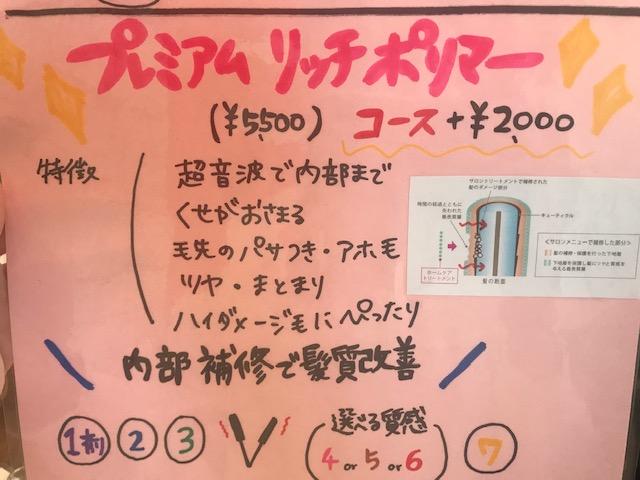 プレミアム リッチポリマー
(¥5,500) コース+¥2,000
特徴
超音波で内部まで
くせがおさまる
毛先のパサつき・アホ毛
ツヤ・まとまり
ハイダメージ毛にぴったり
サロントリートメントで補修された
髪のダメージ部分
時間の経過とともに
失われた
最表質層
キューティクル
ホームケア
トリートメント
髪の断面
<サロンメニューで補修した部分>
髪の補修・保護を行った下地層
下地層を保護し髪にツヤと質感を
与える最表質層
内部補修で髪質改善
1剤 2 3
選べる質感
4 or 5 or 6
7